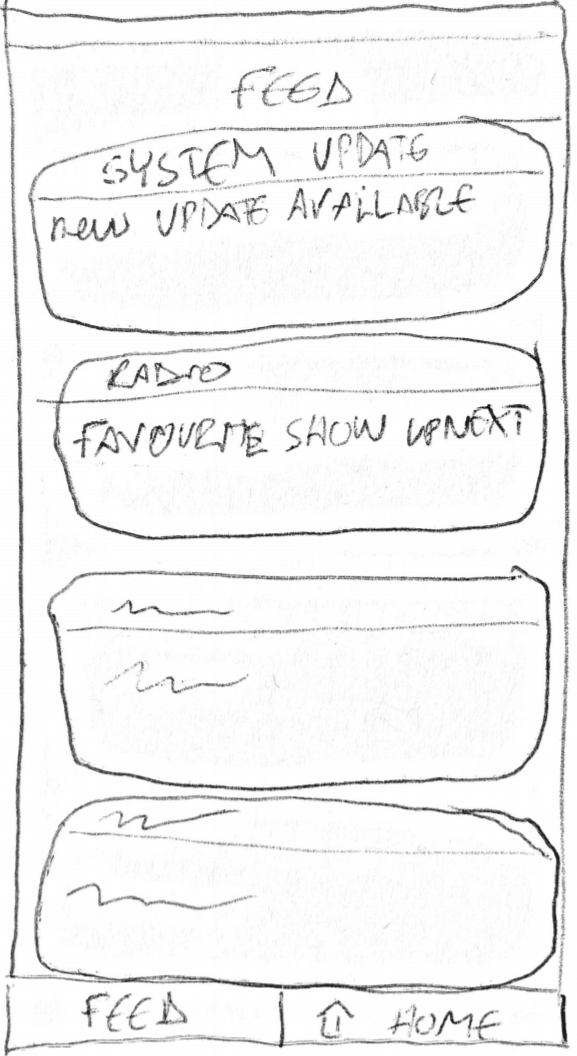 FEED
SYSTEM UPDATE
new UPDATE AVAILABLE
RADIO
FAVOURITE SHOW UPNEXT
FEED
HOME